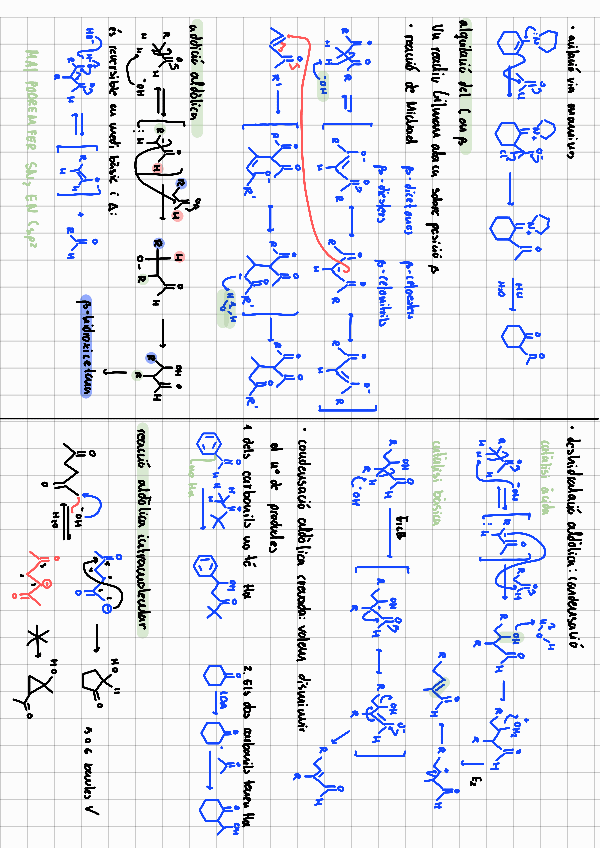 · acilació via enamines
HCl
H2O
alquilació del C en β
Un reactiu Gilman ataca sobre posició β
· reacció de Michael
β-dicetones
β-cetoesters
β-diesters
β-cetonitrils
addició aldòlica
β-hidroxicetona
és reversible en medi bàsic i Δ:
MAI PODREM FER SN2 EN Csp2
· deshidratació aldòlica: condensació
catàlisi àcida
E2
catàlisi bàsica
E1cB
· condensació aldòlica creuada: volem disminuir
el nº de productes
1. dels carbonils no té Hα
no Hα
2. Els dos carbonils tenen Hα
LDA
reacció aldòlica intramolecular
H2O
5 o 6 baules V